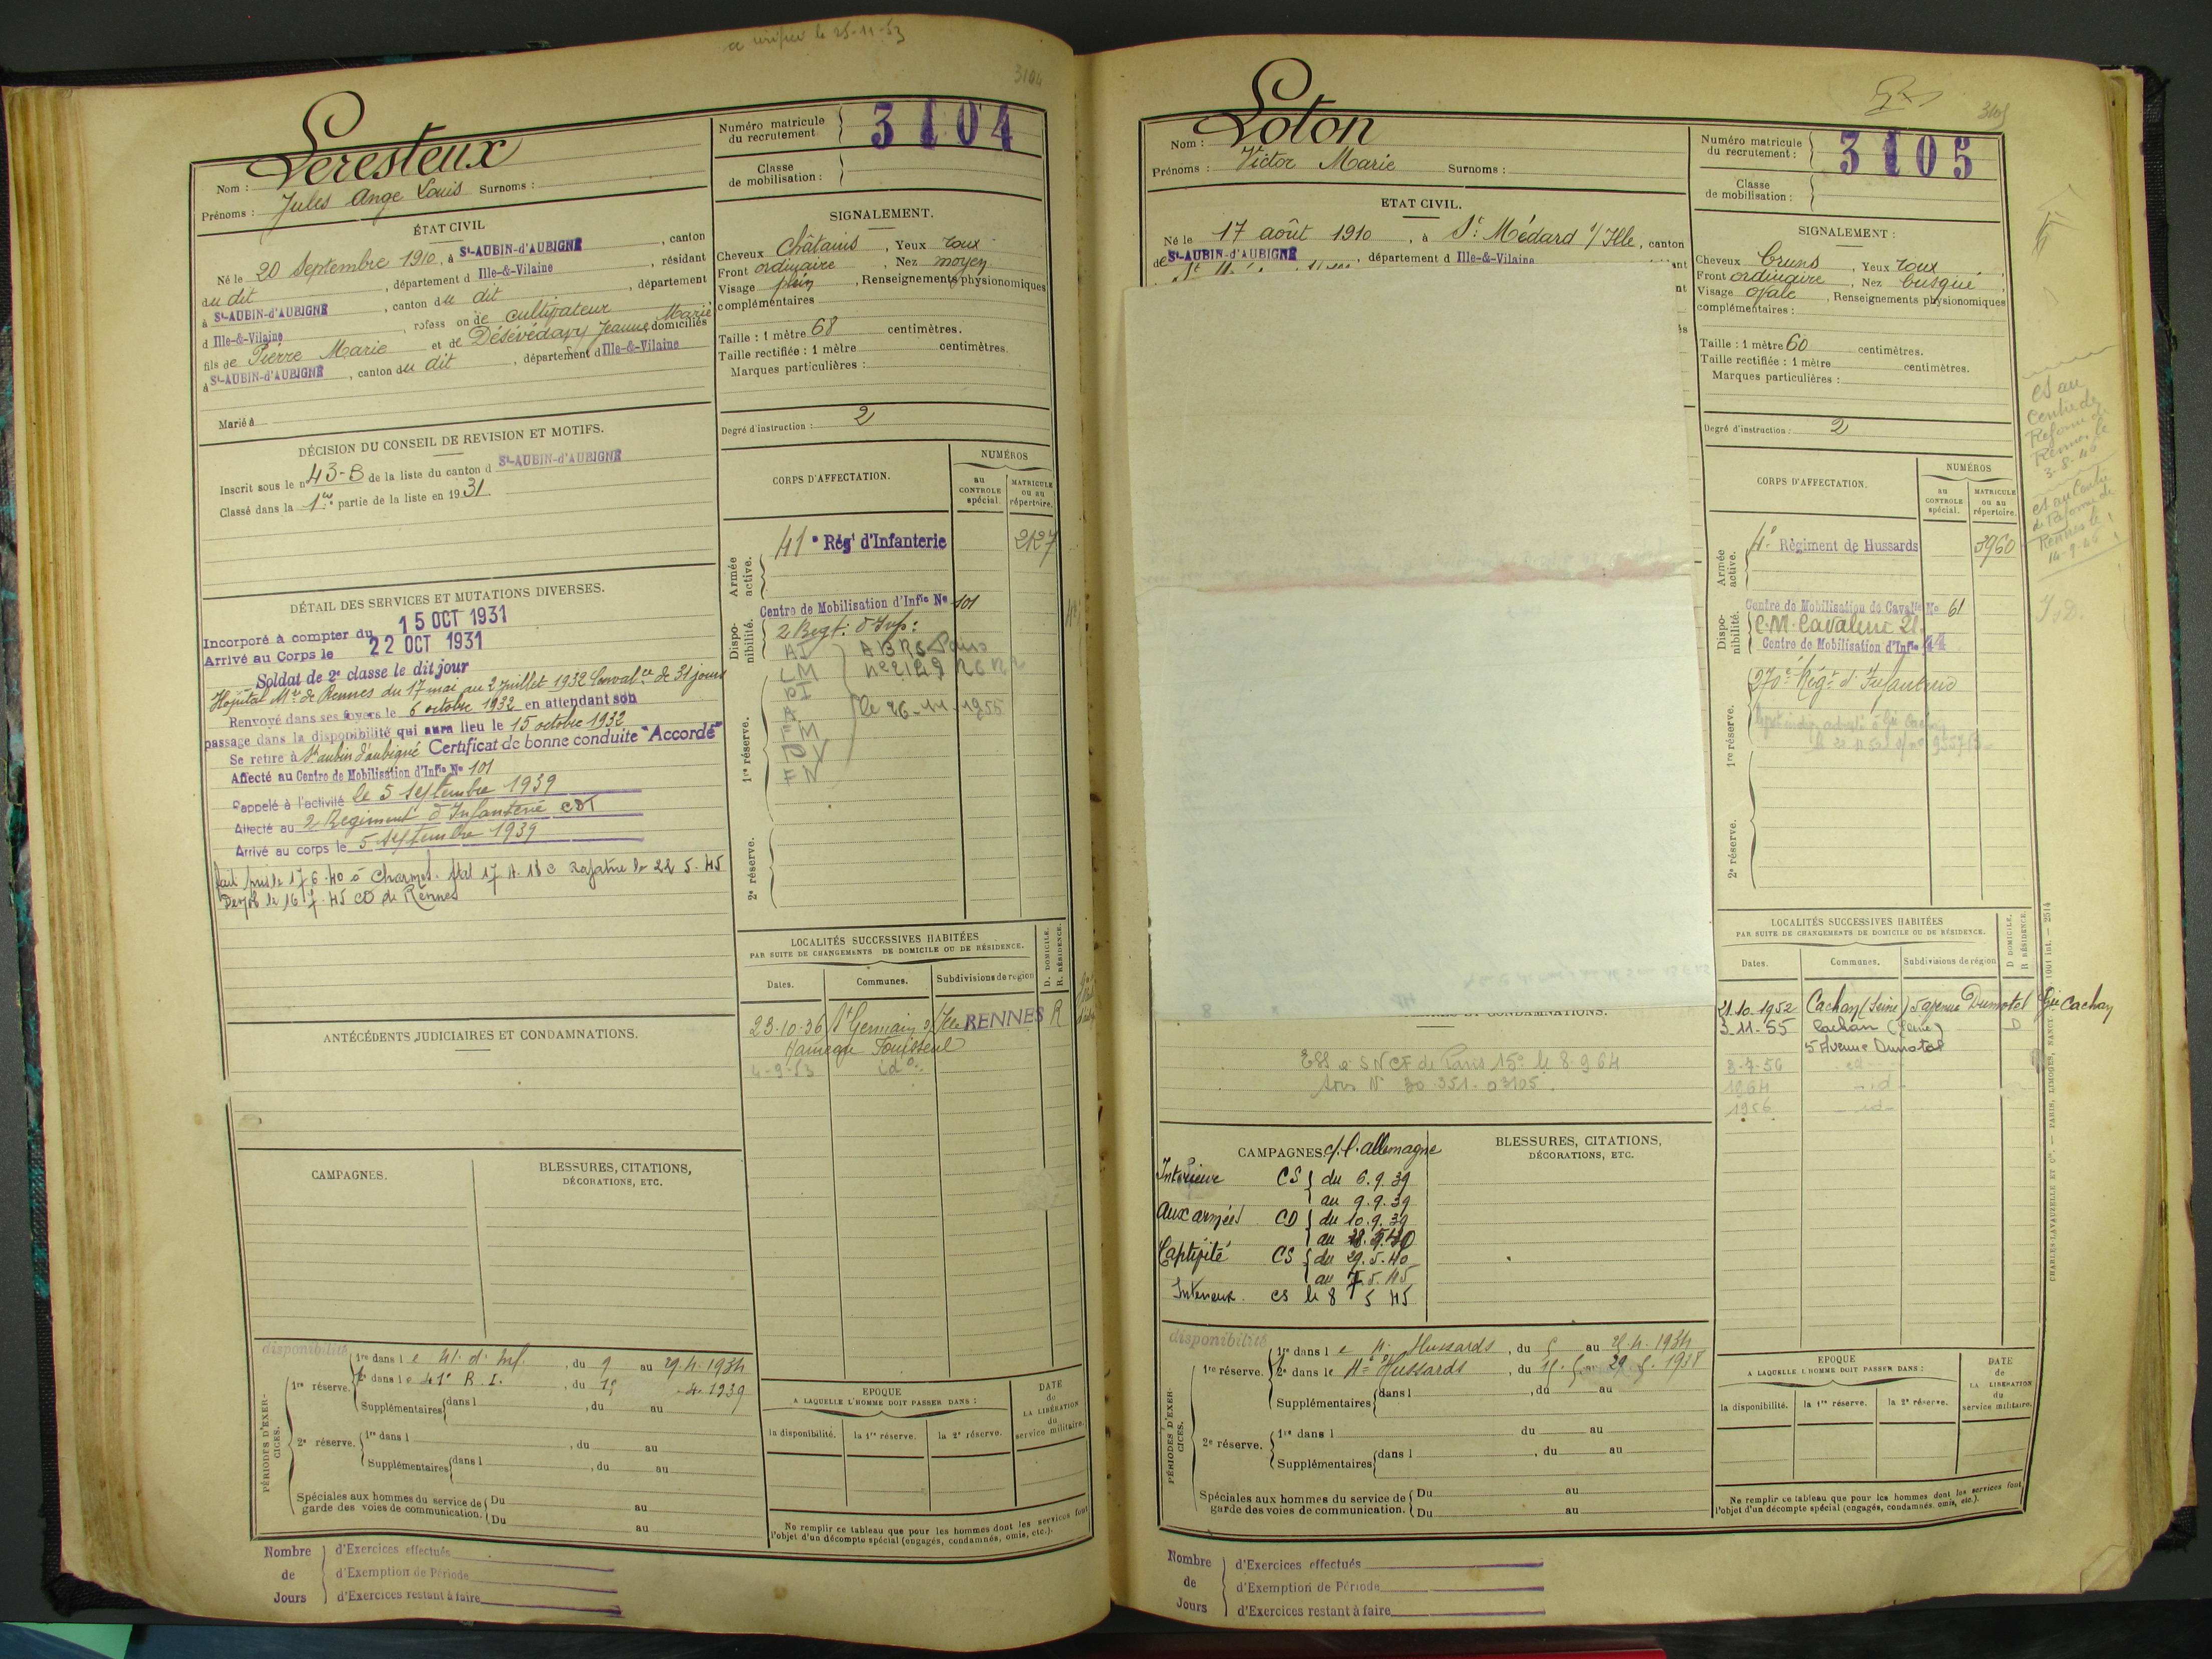 a vérifier le 25-11-53
3104
Leresteux
Nom :
Prénoms : Jules Ange Louis Surnoms :
Numéro matricule du recrutement 3104
Classe de mobilisation :
ÉTAT CIVIL
Né le 20 Septembre 1910, à St-AUBIN-d'AUBIGNÉ, canton
du dit, département d Ille-&-Vilaine, résidant
à St-AUBIN-d'AUBIGNÉ, canton du dit, département
d Ille-&-Vilaine, profession de cultivateur
fils de Pierre Marie et de Désévédavy Jeanne Marie domiciliés
à St-AUBIN-d'AUBIGNÉ, canton du dit, département d Ille-&-Vilaine
Marié à
SIGNALEMENT.
Cheveux Châtains, Yeux roux
Front ordinaire, Nez moyen
Visage plein, Renseignements physionomiques
complémentaires
Taille : 1 mètre 68 centimètres.
Taille rectifiée : 1 mètre centimètres.
Marques particulières :
Degré d'instruction : 2
DÉCISION DU CONSEIL DE REVISION ET MOTIFS.
Inscrit sous le n° 43-B de la liste du canton d St-AUBIN-d'AUBIGNÉ
Classé dans la 1re partie de la liste en 1931.
DÉTAIL DES SERVICES ET MUTATIONS DIVERSES.
Incorporé à compter du 15 OCT 1931
Arrivé au Corps le 22 OCT 1931
Soldat de 2e classe le dit jour
Hôpital Mre de Rennes du 17 mai au 2 juillet 1932 Convalce de 31 jours
Renvoyé dans ses foyers le 6 octobre 1932 en attendant son
passage dans la disponibilité qui aura lieu le 15 octobre 1932
Se retire à St aubin d'aubigné Certificat de bonne conduite "Accordé"
Affecté au Centre de Mobilisation d'Infie No 101
Rappelé à l'activité le 5 septembre 1939
Affecté au 2 Régiment d'Infanterie CDT
Arrivé au corps le 5 septembre 1939
fait pris le 17 6.40 à Charmes.
le 22 5.45
le 16 7.45 CD de Rennes
CORPS D'AFFECTATION.
NUMÉROS
au CONTROLE spécial.
MATRICULE ou au répertoire.
Armée active.
41e Régt d'Infanterie 2127
Disponibilité.
Centre de Mobilisation d'Infie No 101
2 Regt d'Inf:
1re réserve.
le 26-11-1955
2e réserve.
ANTÉCÉDENTS JUDICIAIRES ET CONDAMNATIONS.
LOCALITÉS SUCCESSIVES HABITÉES
PAR SUITE DE CHANGEMENTS DE DOMICILE OU DE RÉSIDENCE.
D. DOMICILE.
R. RÉSIDENCE.
Dates. Communes. Subdivisions de région
23-10-36 St Germain s/ Ille RENNES R
4-9-53 id
CAMPAGNES.
BLESSURES, CITATIONS,
DÉCORATIONS, ETC.
disponibilité
PÉRIODES D'EXERCICES.
1re réserve. 1re dans le 41e d'Inf., du 9 au 29.4.1934
2e dans le 41e R.I., du 15 -4-1939
Supplémentaires dans l , du au
2e réserve. 1re dans l , du au
Supplémentaires dans l , du au
Spéciales aux hommes du service de garde des voies de communication. Du au
Du au
EPOQUE
A LAQUELLE L'HOMME DOIT PASSER DANS :
la disponibilité. la 1re réserve. la 2e réserve.
DATE de LA LIBÉRATION du service militaire.
Ne remplir ce tableau que pour les hommes dont les services font
l'objet d'un décompte spécial (engagés, condamnés, omis, etc.).
Nombre de Jours
d'Exercices effectués
d'Exemption de Période
d'Exercices restant à faire
3105
Loton
Nom :
Prénoms : Victor Marie Surnoms :
Numéro matricule du recrutement : 3105
Classe de mobilisation :
ETAT CIVIL.
Né le 17 août 1910, à St Médard s/ Ille, canton
de St-AUBIN-d'AUBIGNÉ, département d Ille-&-Vilaine
SIGNALEMENT :
Cheveux bruns, Yeux roux
Front ordinaire, Nez busqué
Visage ovale, Renseignements physionomiques
complémentaires :
Taille : 1 mètre 60 centimètres.
Taille rectifiée : 1 mètre centimètres.
Marques particulières :
Degré d'instruction : 2
est au
Centre de
Réforme de
Rennes le
3-8-46
est au Centre
de Réforme de
Rennes le
14-9-46
CORPS D'AFFECTATION.
NUMÉROS
au CONTROLE spécial.
MATRICULE ou au répertoire.
Armée active.
4e Régiment de Hussards 3960
Disponibilité.
Centre de Mobilisation de Cavalie No 61
C.M. Cavalerie 21.
Centre de Mobilisation d'Infie 44
1re réserve.
270e Régt d'Infanterie
2e réserve.
CONDAMNATIONS.
ESS a SNCF de Paris 15e le 8.9.64
LOCALITÉS SUCCESSIVES HABITÉES
PAR SUITE DE CHANGEMENTS DE DOMICILE OU DE RÉSIDENCE.
D DOMICILE.
R RÉSIDENCE.
Dates. Communes. Subdivisions de région
21.10.1952 Cachan (Seine) 5 avenue Dumotel Gie Cachan
3-11-55 Cachan (Seine) D
5 Avenue Dumotel
3-7-56 id
1964 -id-
1956 -id-
CAMPAGNES c/ l'allemagne
Intérieur CS du 6.9.39
au 9.9.39
Aux armées CD du 10.9.39
au 28.5.40
Captivité CS du 29.5.40
au 7.5.45
Intérieur CS le 8 5 45
BLESSURES, CITATIONS,
DÉCORATIONS, ETC.
disponibilité
PÉRIODES D'EXERCICES.
1re réserve. 1re dans le 4. Hussards, du 5 au 28.4.1934
2e dans le 4e Hussards, du au 29. 1938
Supplémentaires dans l , du au
2e réserve. 1re dans l du au
Supplémentaires dans l , du au
Spéciales aux hommes du service de garde des voies de communication. Du au
Du au
EPOQUE
A LAQUELLE L'HOMME DOIT PASSER DANS :
la disponibilité. la 1re réserve. la 2e réserve.
DATE de LA LIBERATION du service militaire.
Ne remplir ce tableau que pour les hommes dont les services font
l'objet d'un décompte spécial (engagés, condamnés, omis, etc.).
CHARLES-LAVAUZELLE ET Cie. — PARIS, LIMOGES, NANCY. 1001 int. — 2514
Nombre de Jours
d'Exercices effectués
d'Exemption de Période
d'Exercices restant à faire